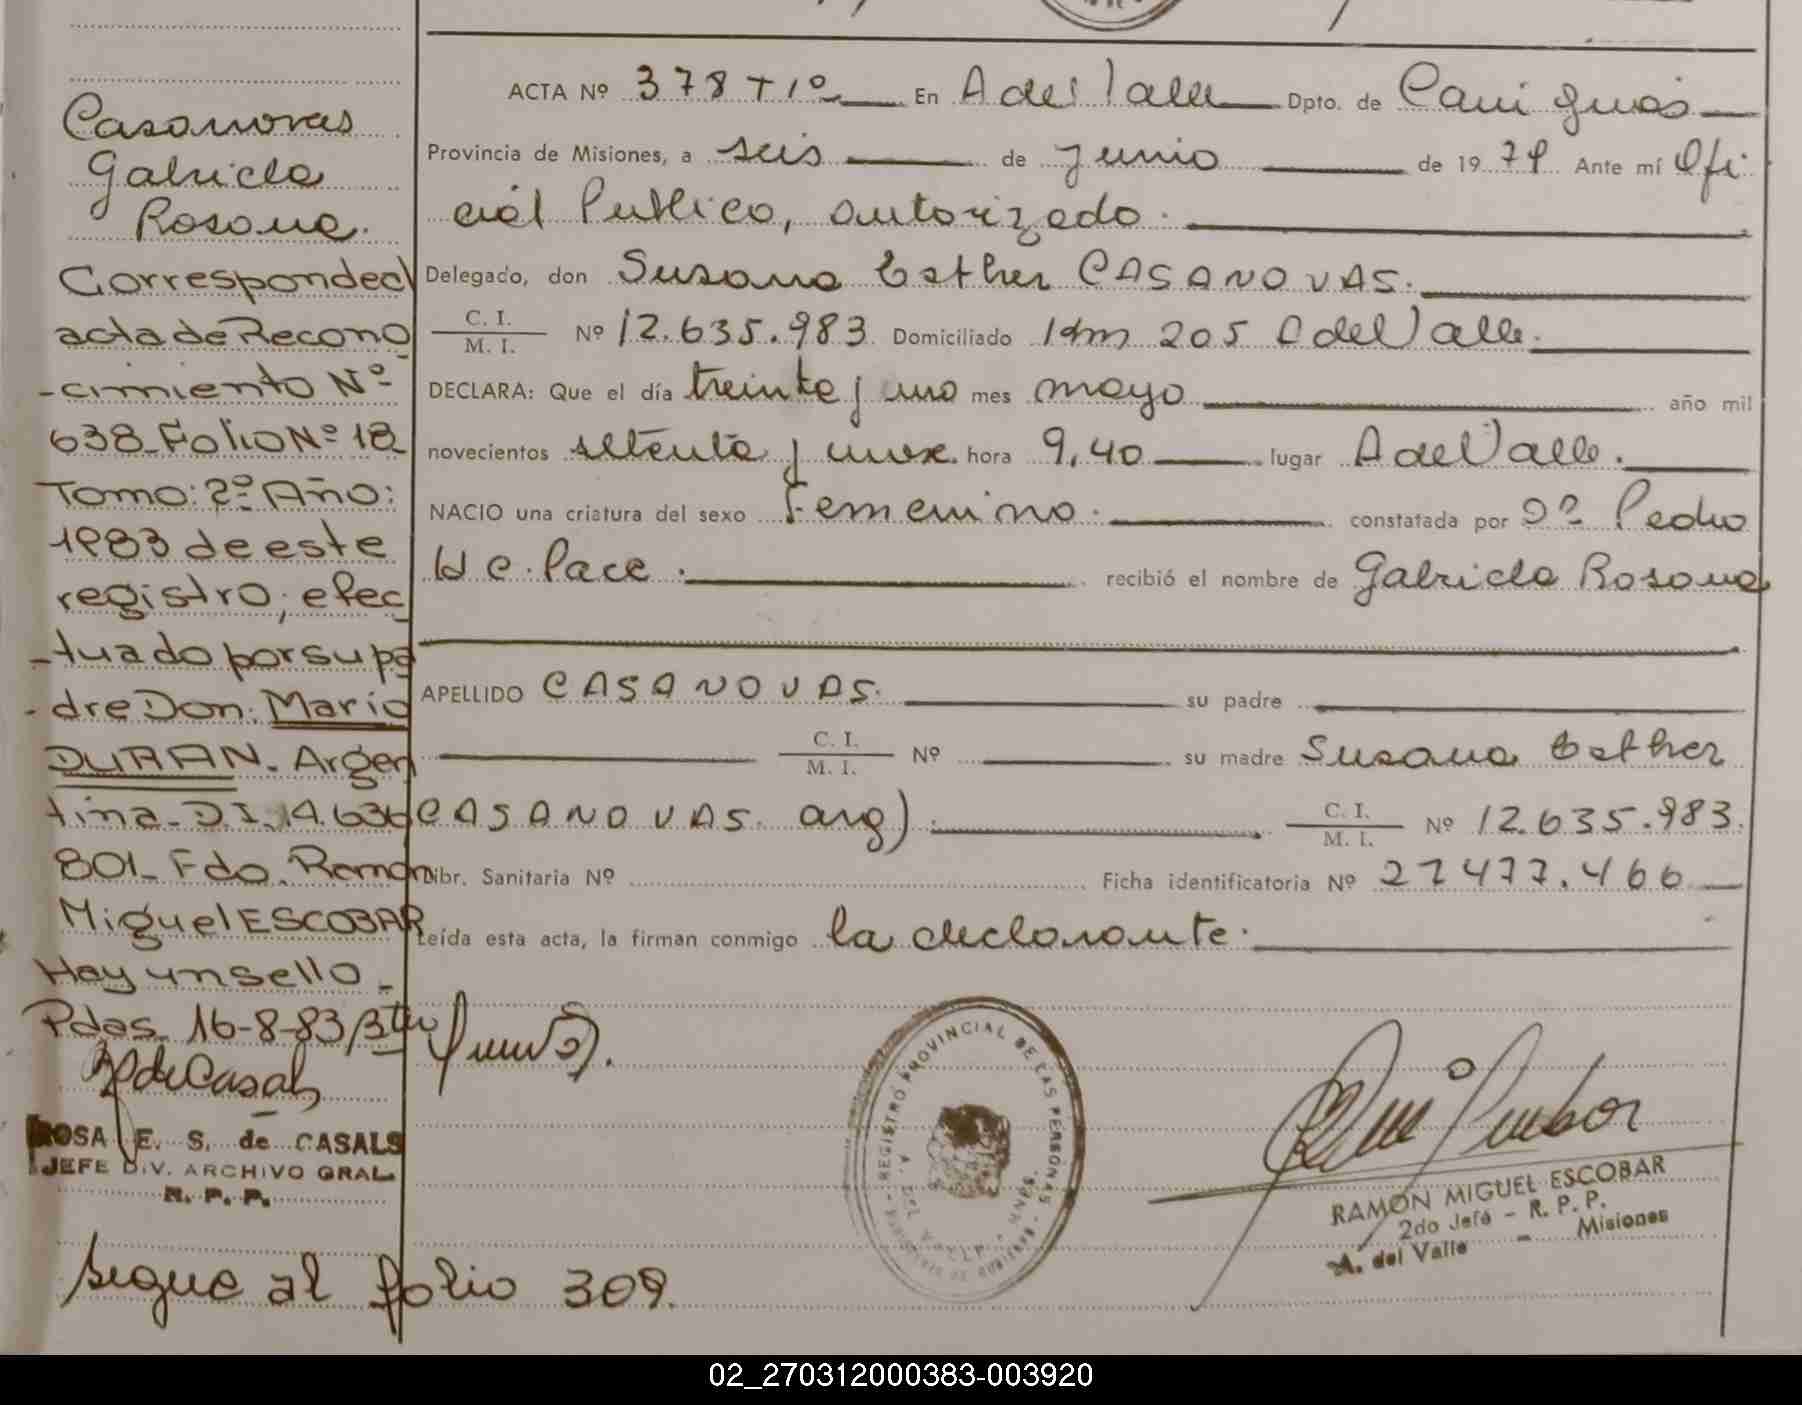 Casanovas
Gabriela
Rosana.
Corresponde al
acta de Recono
-cimiento Nº
638-Folio Nº 18
Tomo: 2º Año:
1983 de este
registro, efec
-tuado por su pa
-dre Don. Mario
DURAN- Argen
tina- D.I. 14.636
801- Fdo. Ramon
Miguel ESCOBAR
Hay un sello-
Pdas. 16-8-83
ROSA E. S. de CASALS
JEFE DIV. ARCHIVO GRAL.
R. P. P.
Sigue al folio 309.
ACTA Nº 378 T 1º En A del Valle Dpto. de Cain guas
Provincia de Misiones, a seis de Junio de 1979 Ante mí Ofi
cial Publico, autorizado.
Delegado, don Susana Esther CASANOVAS.
C. I.
M. I. Nº 12.635.983 Domiciliado Km 205 A del Valle.
DECLARA: Que el día treinta y uno mes mayo año mil
novecientos setenta y nueve. hora 9,40 lugar A del Valle.
NACIO una criatura del sexo Femenino. constatada por Dº Pedro
H C. Pace. recibió el nombre de Gabriela Rosana
APELLIDO CASANOVAS. su padre
C. I.
M. I. Nº su madre Susana Esther
CASANOVAS. arg) C. I.
M. I. Nº 12.635.983.
Libr. Sanitaria Nº Ficha identificatoria Nº 27477.466
Leída esta acta, la firman conmigo la declarante.
REGISTRO PROVINCIAL DE LAS PERSONAS
A. DEL VALLE - MNES.
RAMON MIGUEL ESCOBAR
2do Jefe - R. P. P.
A. del Valle - Misiones
02_270312000383-003920